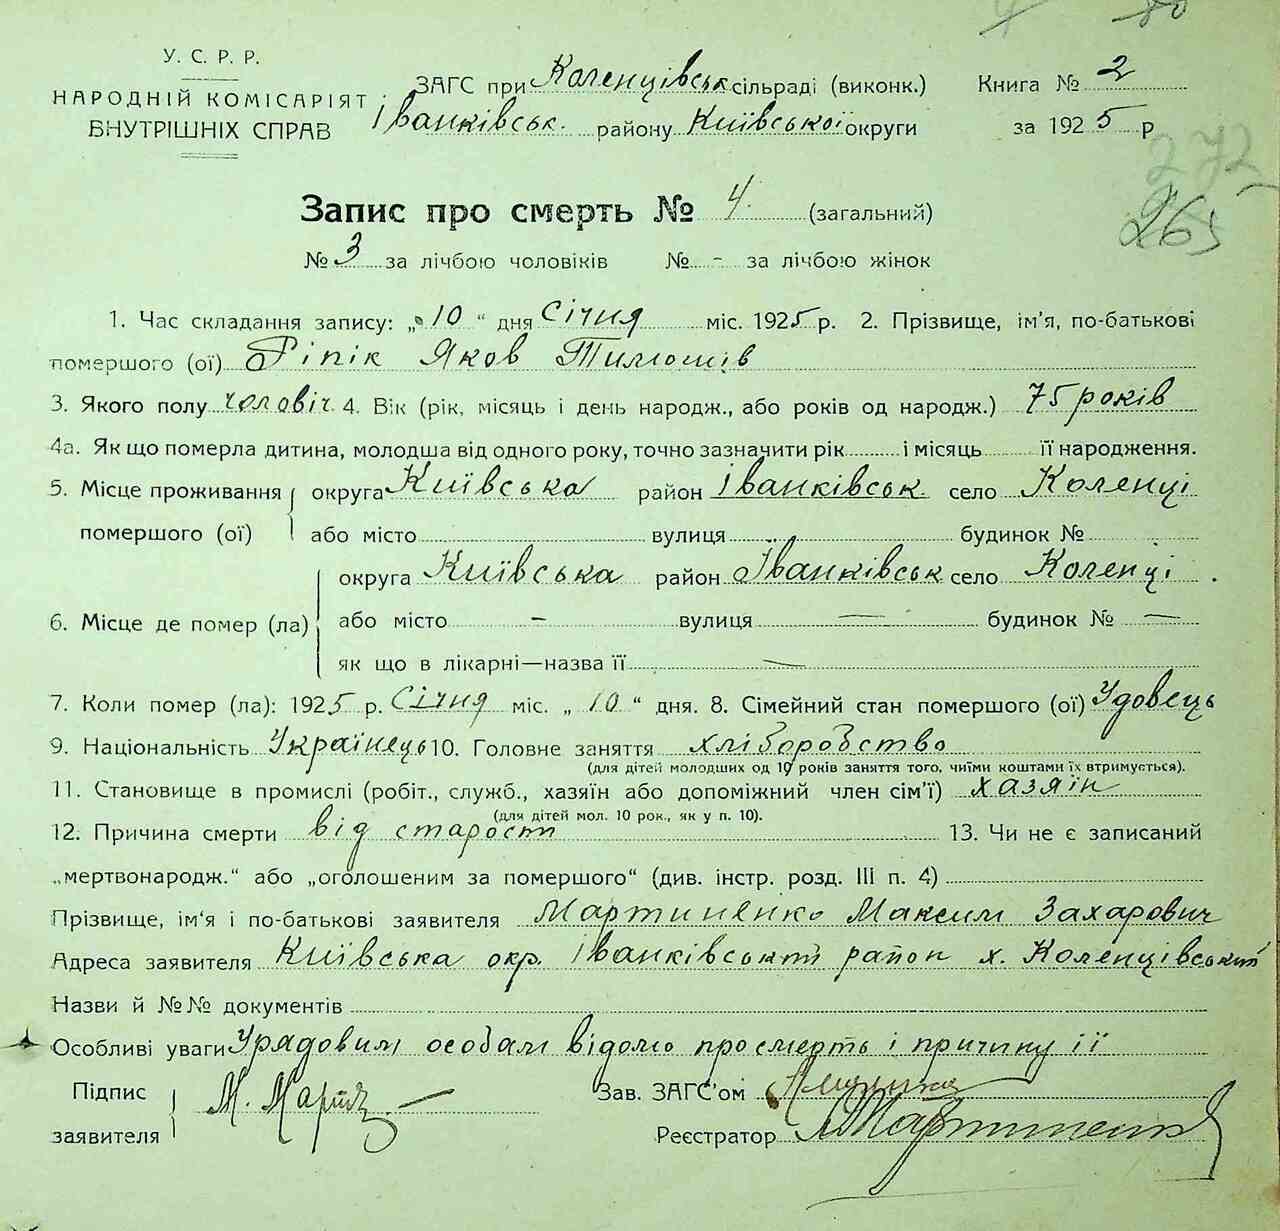 У. С. Р. Р.
НАРОДНІЙ КОМІСАРІЯТ
ВНУТРІШНІХ СПРАВ
ЗАГС при Коленцівськ сільраді (виконк.)
Іванківськ. району Київської округи
Книга № 2
за 1925 р
272
265
Запис про смерть № 4. (загальний)
№ 3 за лічбою чоловіків № - за лічбою жінок
1. Час складання запису: „10“ дня Січня міс. 1925 р. 2. Прізвище, ім'я, по-батькові
помершого (ої) Ріпік Яков Тимошів
3. Якого полу чоловіч. 4. Вік (рік, місяць і день народж., або років од народж.) 75 років
4а. Як що померла дитина, молодша від одного року, точно зазначити рік і місяць її народження.
5. Місце проживання помершого (ої) округа Київська район Іванківськ. село Коленці
або місто вулиця будинок №
6. Місце де помер (ла) округа Київська район Іванківськ село Коленці.
або місто - вулиця — будинок № —
як що в лікарні—назва її —
7. Коли помер (ла): 1925 р. Січня міс. „10“ дня. 8. Сімейний стан помершого (ої) Удовець
9. Національність Українець 10. Головне заняття хліборобство
(для дітей молодших од 10 років заняття того, чиїми коштами їх втримується).
11. Становище в промислі (робіт., служб., хазяїн або допоміжний член сім'ї) хазяїн
(для дітей мол. 10 рок., як у п. 10).
12. Причина смерти від старости 13. Чи не є записаний
„мертвонародж.“ або „оголошеним за помершого“ (див. інстр. розд. III п. 4)
Прізвище, ім'я і по-батькові заявителя Мартиненко Максим Захарович
Адреса заявителя Київська окр. Іванківський район х. Коленцівський
Назви й №№ документів
Особливі уваги Урядовим особам відомо про смерть і причину її
Підпис заявителя М. Март
Зав. ЗАГС'ом
Реєстратор Мартиненко